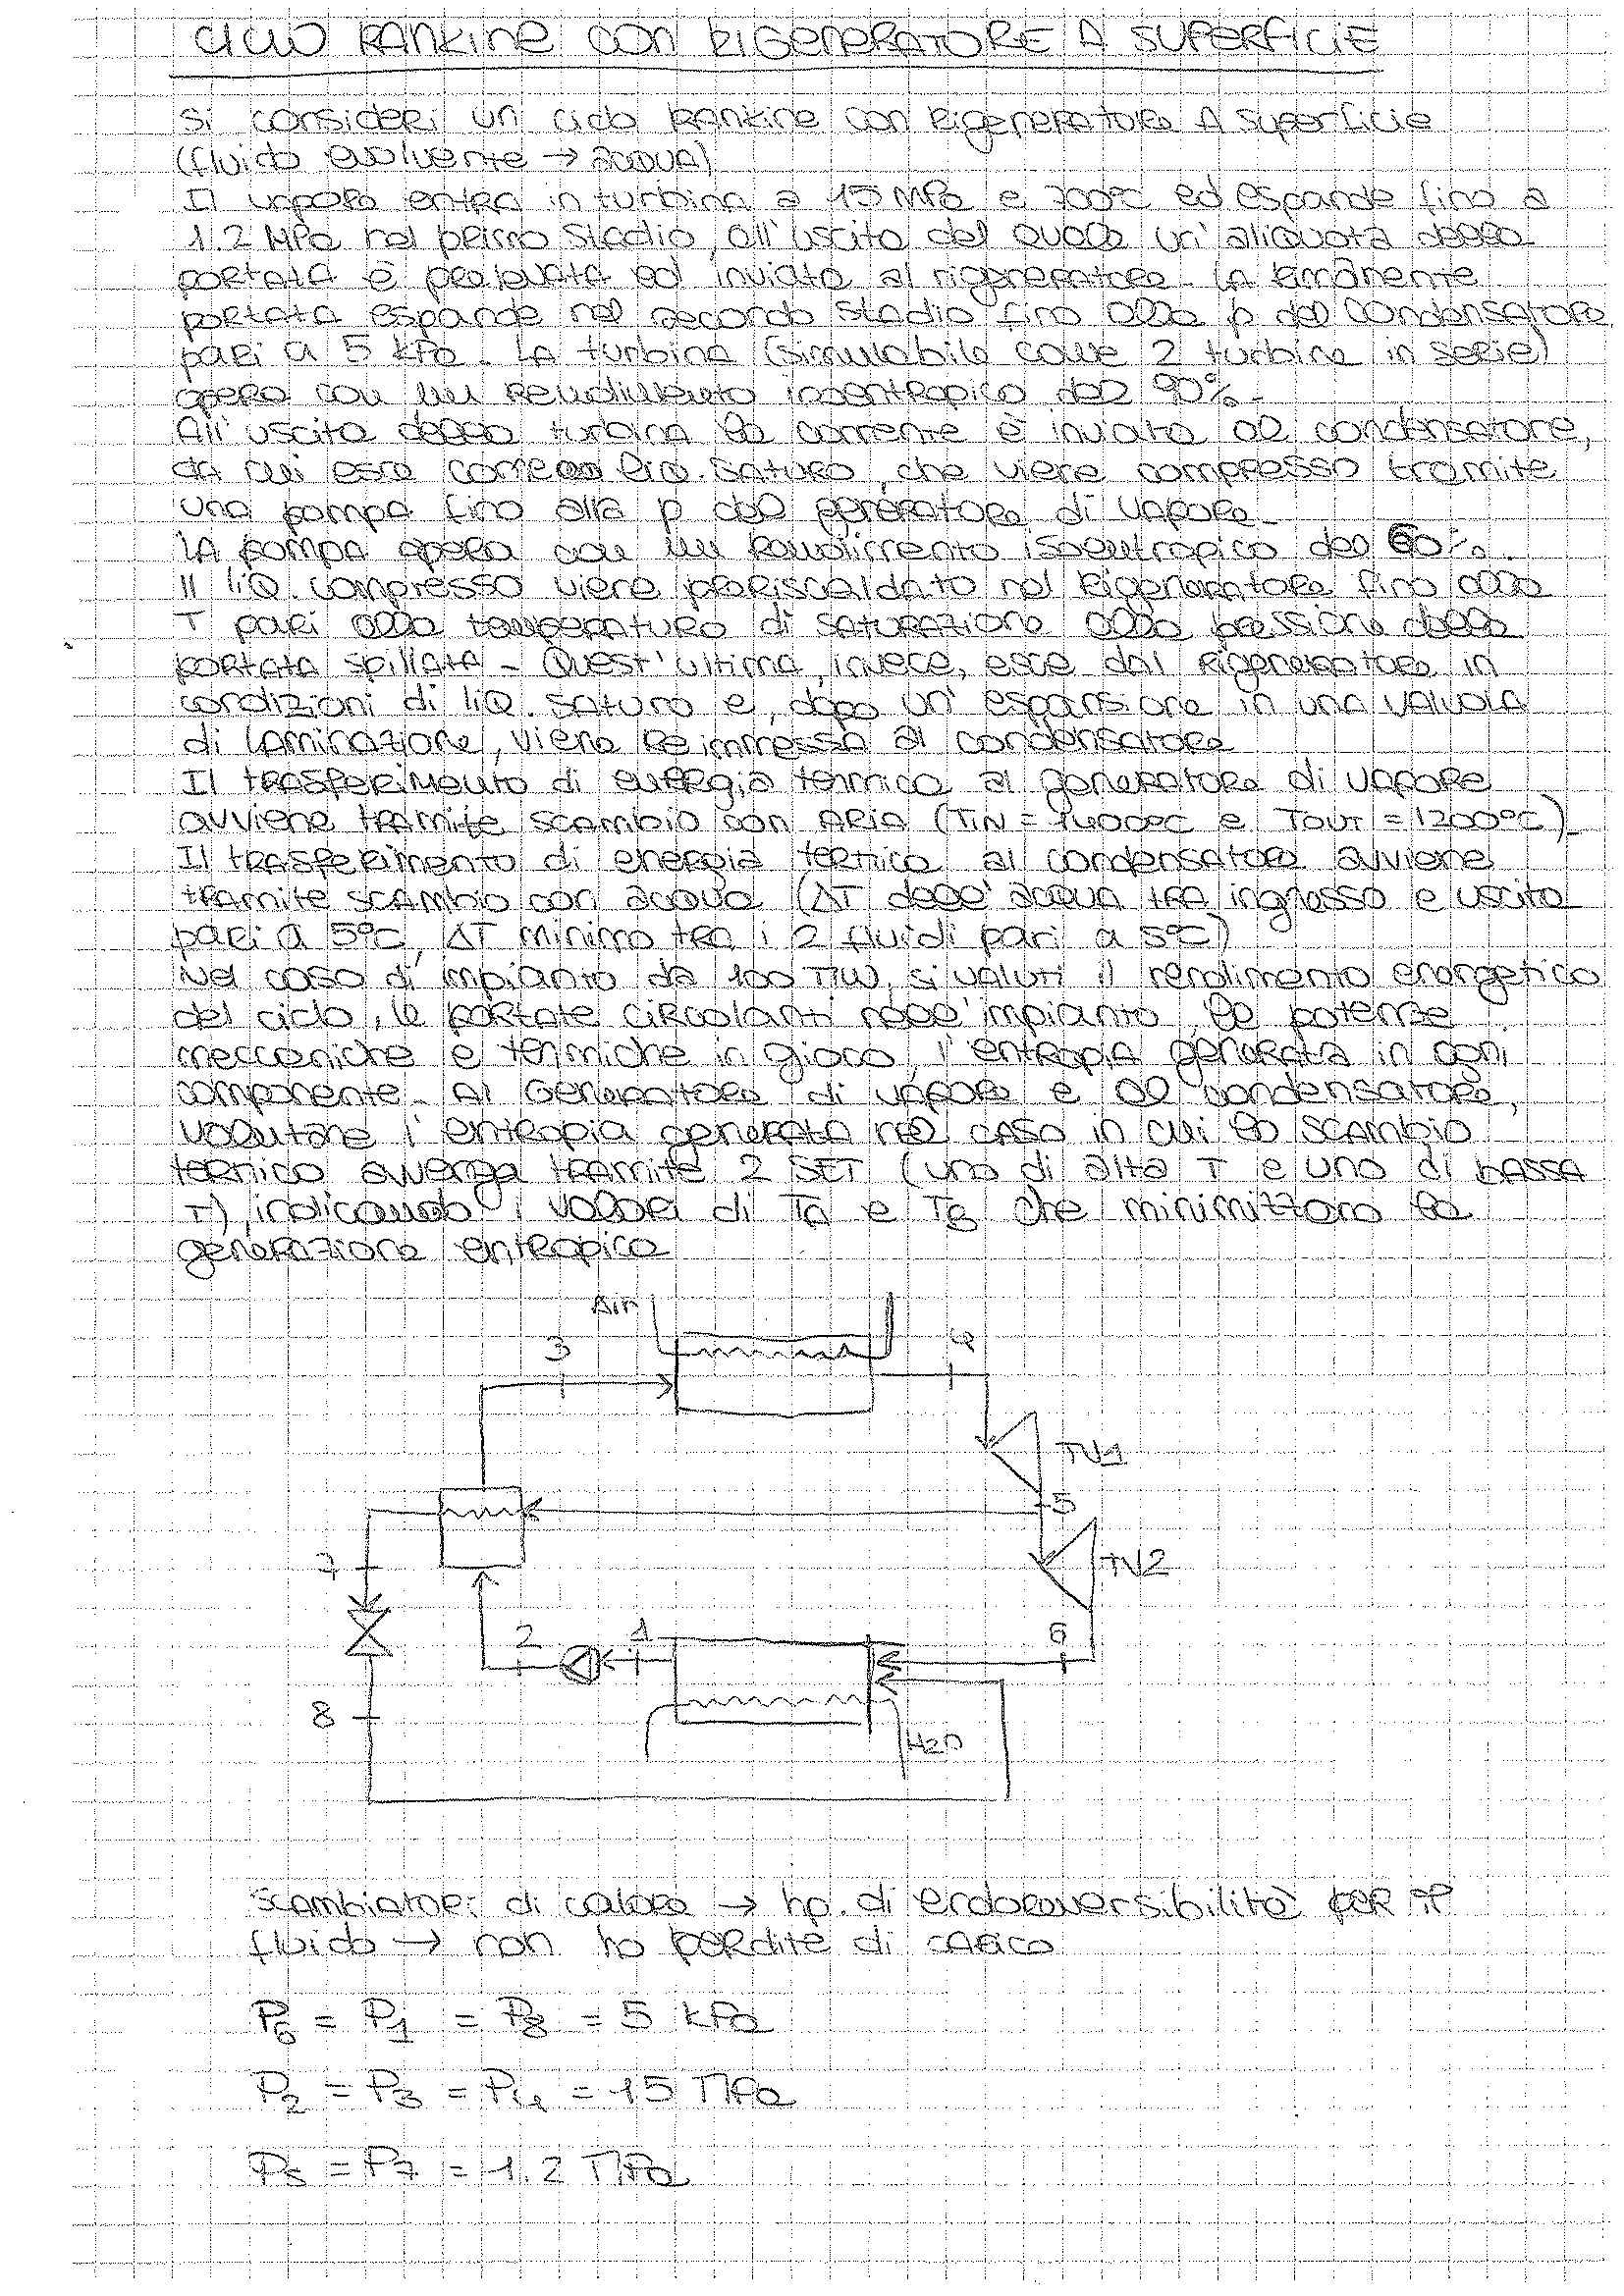 CICLO RANKINE CON RIGENERATORE A SUPERFICIE
Si consideri un ciclo Rankine con Rigeneratore A superficie
(fluido evolvente → acqua)
Il vapore entra in turbina a 15 MPa e 700°C ed espande fino a
1.2 MPa nel primo stadio, all'uscita del quale un'aliquota della
portata è prelevata ed inviata al rigeneratore. La rimanente
portata espande nel secondo stadio fino alla p del condensatore,
pari a 5 kPa. La turbina (simulabile come 2 turbine in serie)
opera con un rendimento isoentropico del 90%.
All'uscita della turbina la corrente è inviata al condensatore,
da cui esce come liq. saturo, che viene compresso tramite
una pompa fino alla p del generatore di vapore.
La pompa opera con un rendimento isoentropico del 60%.
Il liq. compresso viene preriscaldato nel rigeneratore fino alla
T pari alla temperatura di saturazione alla pressione della
portata spillata. Quest'ultima, invece, esce dal rigeneratore in
condizioni di liq. saturo e, dopo un'espansione in una valvola
di laminazione, viene reimmessa al condensatore
Il trasferimento di energia termica al generatore di vapore
avviene tramite scambio con ARIA (TIN = 1400°C e TOUT = 1200°C).
Il trasferimento di energia termica al condensatore avviene
tramite scambio con acqua (ΔT dell'acqua tra ingresso e uscita
pari a 5°C, ΔT minimo tra i 2 fluidi pari a 5°C)
Nel caso di impianto da 100 MW, si valuti il rendimento energetico
del ciclo, le portate circolanti nell'impianto, le potenze
meccaniche e termiche in gioco, l'entropia generata in ogni
componente. Al Generatore di vapore e al condensatore,
valutare l'entropia generata nel caso in cui lo scambio
termico avvenga tramite 2 SET (uno di alta T e uno di bassa
T), indicando i valori di TA e TB che minimizzano la
generazione entropica
Air
3
4
TV1
5
7
TV2
2
1
6
8
H2O
Scambiatori di calore → hp. di endoreversibilità per il
fluido → non ho perdite di carico
P6 = P1 = P8 = 5 kPa
P2 = P3 = P4 = 15 MPa
P5 = P7 = 1.2 MPa